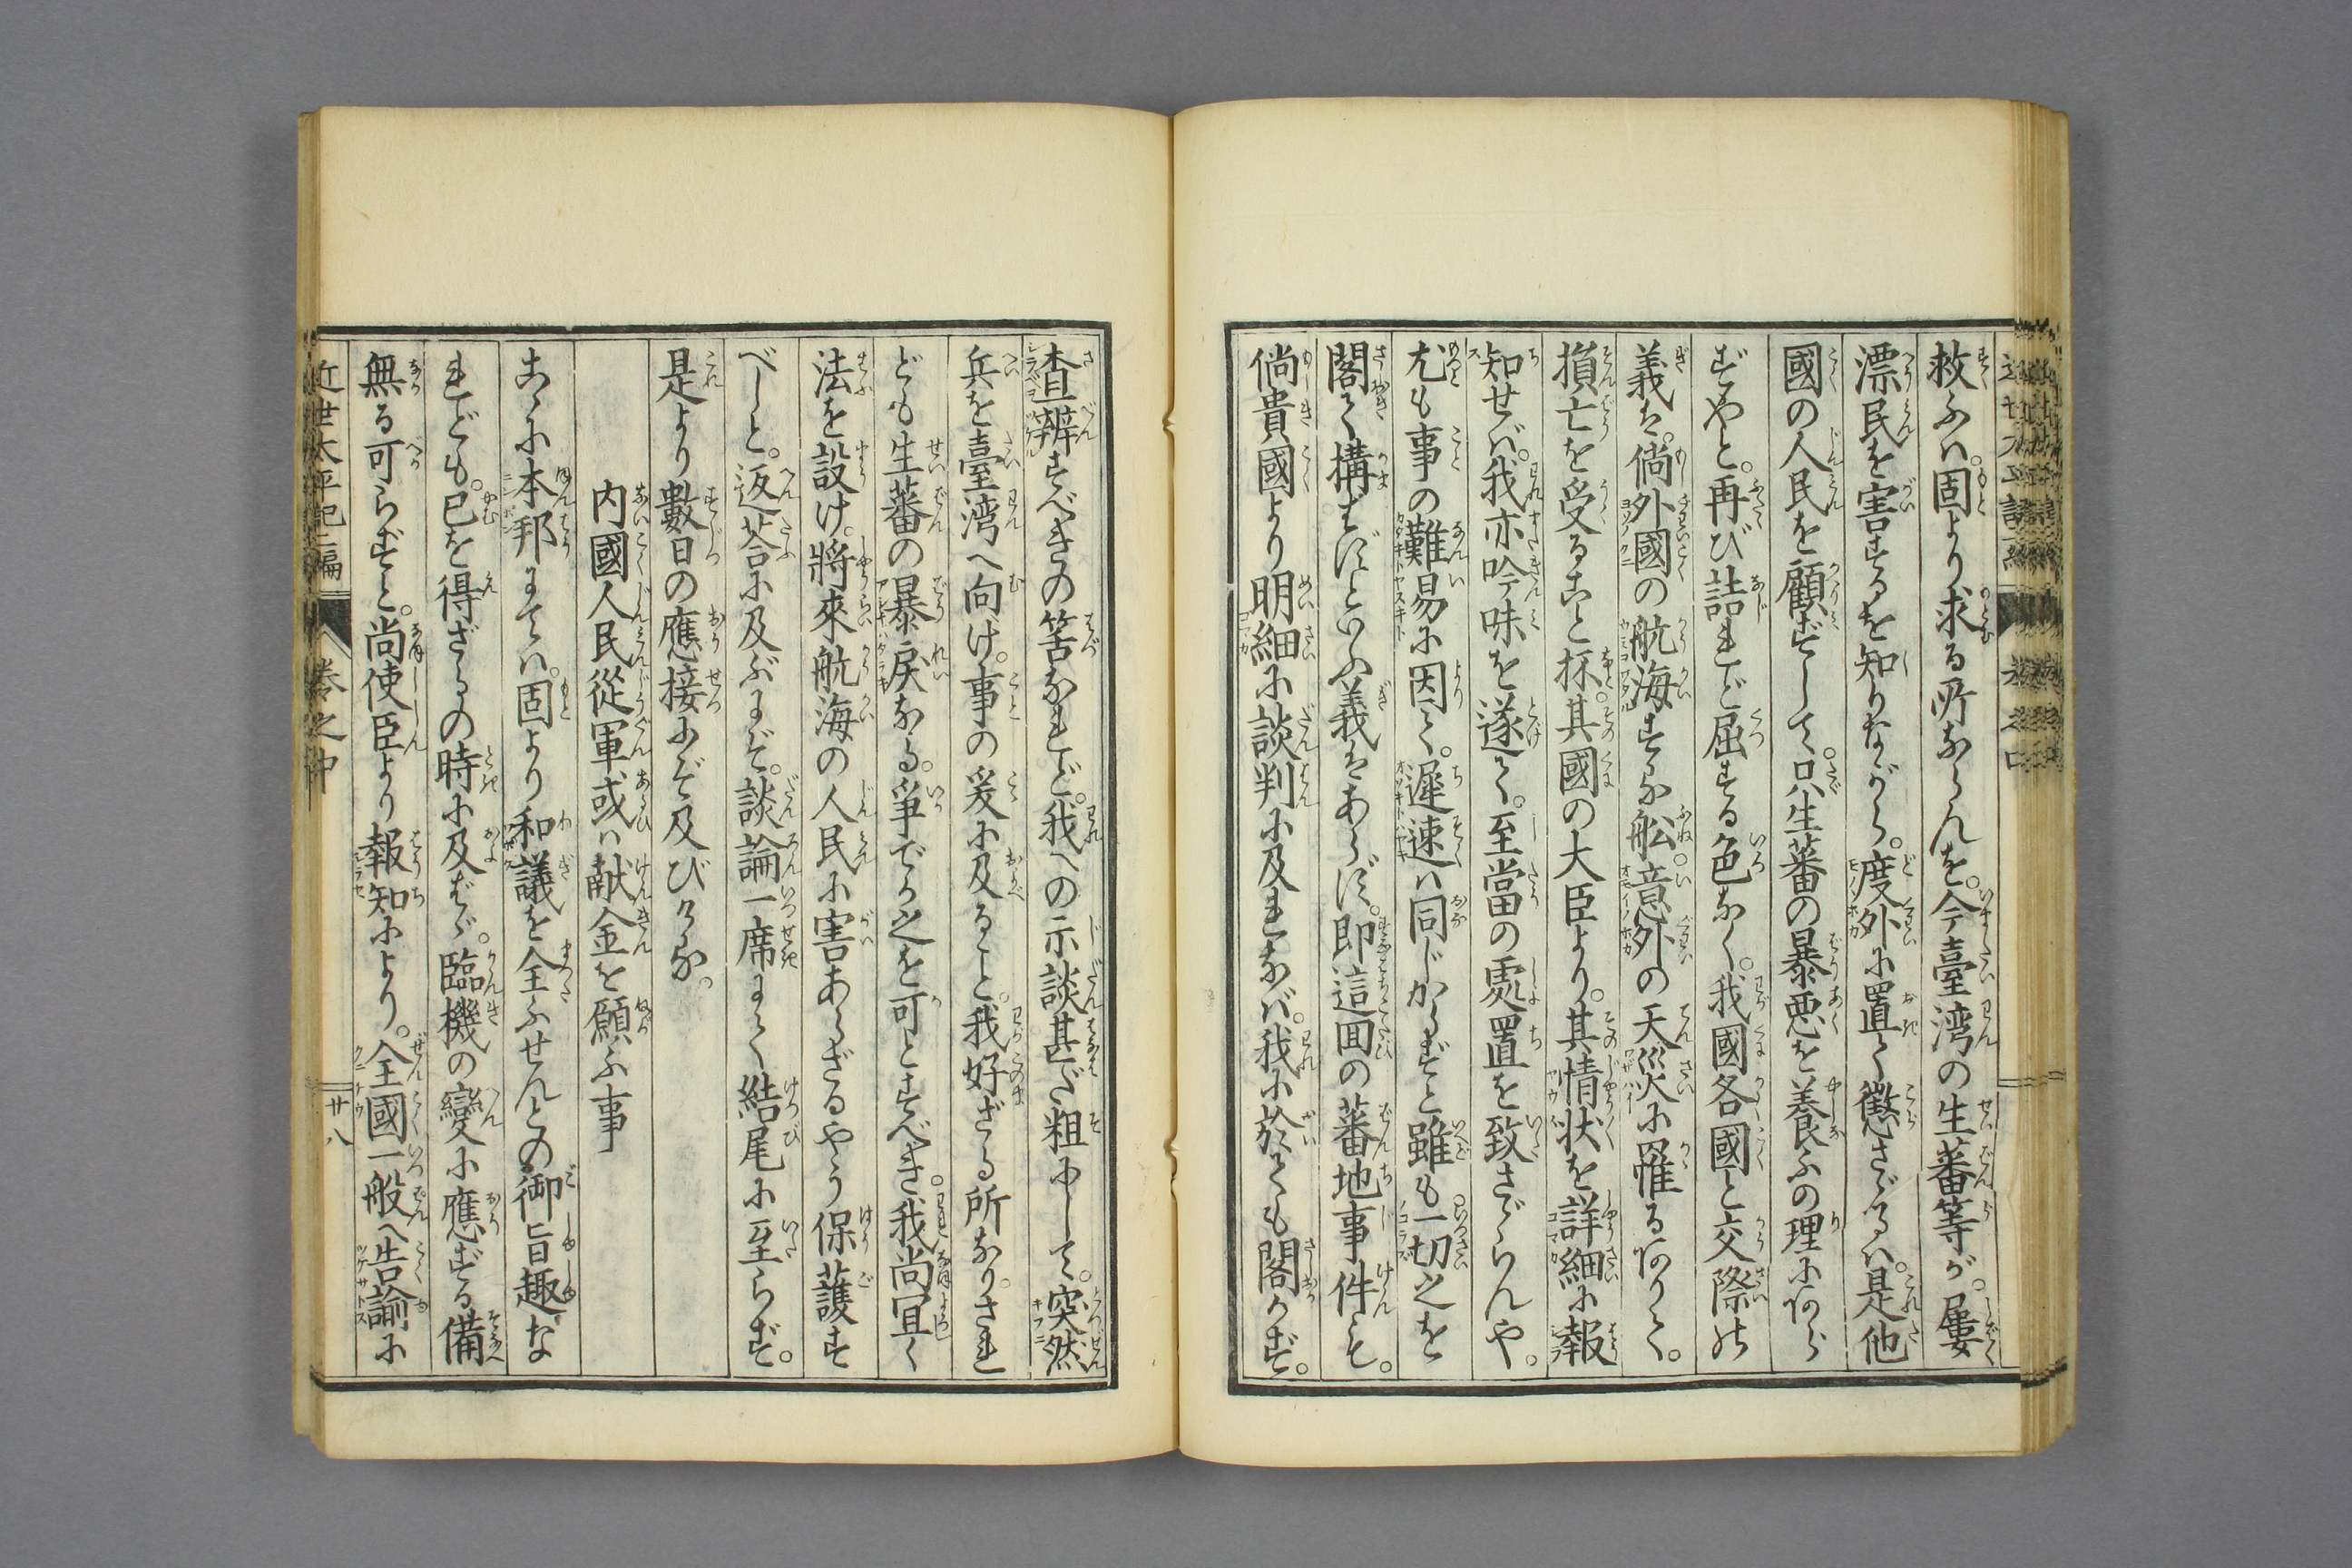 救ふハ。固より求る所ならんを。今臺湾の生蕃等が。屢
漂民を害するを知りながら。度外に置て懲さゞるハ。是他
國の人民を顧ずして。只生蕃の暴悪を養ふの理にあら
ずやと。再び詰れど屈する色なく。我國各國と交際の
義は。倘外國の航海する舩。意外の天災に罹るありて。
損亡を受ること抔。其國の大臣より。其情状を詳細に報
知せバ。我亦吟味を遂て。至當の處置を致さゞらんや。
尤も事の難易に因て。遲速ハ同じからずと雖も一切之を
閣て構はずといふ義はあらず。即這回の蕃地事件とも。
倘貴國より明細に談判に及れなバ。我に於ても閣かず。
査辨すべきの筈なれど。我への示談甚だ粗にして。突然
兵を臺湾へ向け。事の爰に及ること。我好ざる所なり。され
ども生蕃の暴戻なる。爭でか之を可とすべき。我尚宜く
法を設け。將來航海の人民に害あらざるやう保護す
べしと。返荅に及ぶまで。談論一席にて結尾に至らず。
是より數日の應接にぞ及びける。
内國人民從軍或ハ献金を願ふ事
爰に本邦にてハ。固より和議を全ふせんとの御旨趣な
れども。已を得ざるの時に及ばゞ。臨機の變に應ずる備
無る可らずと。尚使臣より報知により。全國一般へ告諭に
近世太平記二編
卷之中
廿八